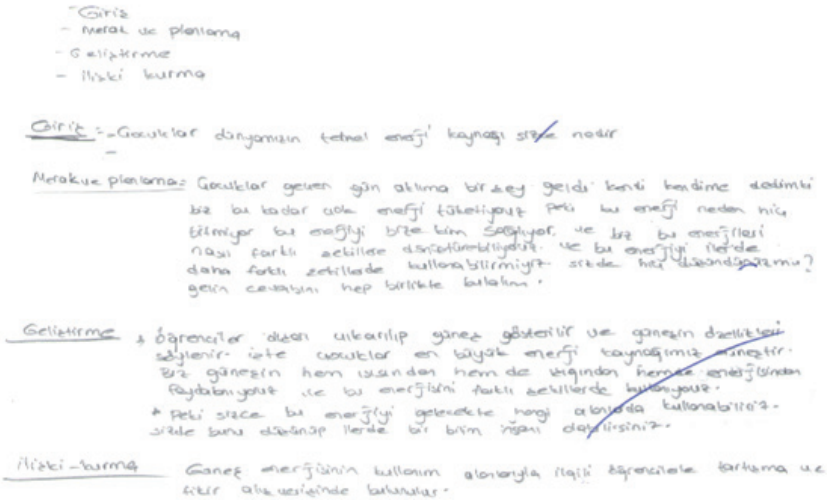 - Giriş
- Merak ve planlama
- Geliştirme
- ilişki kurma
Giriş :- Çocuklar dünyamızın temel enerji kaynağı sizce nedir
Merak ve planlama: Çocuklar geçen gün aklıma bir şey geldi kendi kendime dedimki
biz bu kadar çok enerji tüketiyoruz peki bu enerji neden hiç
bitmiyor bu enerjiyi bize kim sağlıyor ve biz bu enerjileri
nasıl farklı şekillere dönüştürebiliyoruz ve bu enerjiyi ilerde
daha farklı şekillerde kullanabilirmiyiz sizde hiç düşündünüzmü?
gelin cevabını hep birlikte bulalım.
Geliştirme * öğrenciler dışarı çıkarılıp güneş gösterilir ve güneşin özellikleri
söylenir. işte çocuklar en büyük enerji kaynağımız güneştir.
Biz güneşin hem ısısından hem de ışığından hemde enerjisinden
faydalanıyoruz ve bu enerjisini farklı şekillerde kullanıyoruz.
* Peki sizce bu enerjiyi gelecekte hangi alanlarda kullanabiliriz.
sizde bunu düşünüp ilerde bir bilim insanı olabilirsiniz.
ilişki-kurma Güneş enerjisinin kullanım alanlarıyla ilgili öğrencilerle tartışma ve
fikir alış verişinde bulunulur.